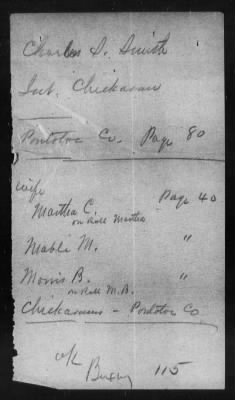 Charles D. Smith
Int. Chickasaw
Pontotoc Co. Page 80
wife
Martha C. Page 40
on Roll Martha
Mable M. "
Morris B. "
on Roll M.B.
Chickasaws - Pontotoc Co
115